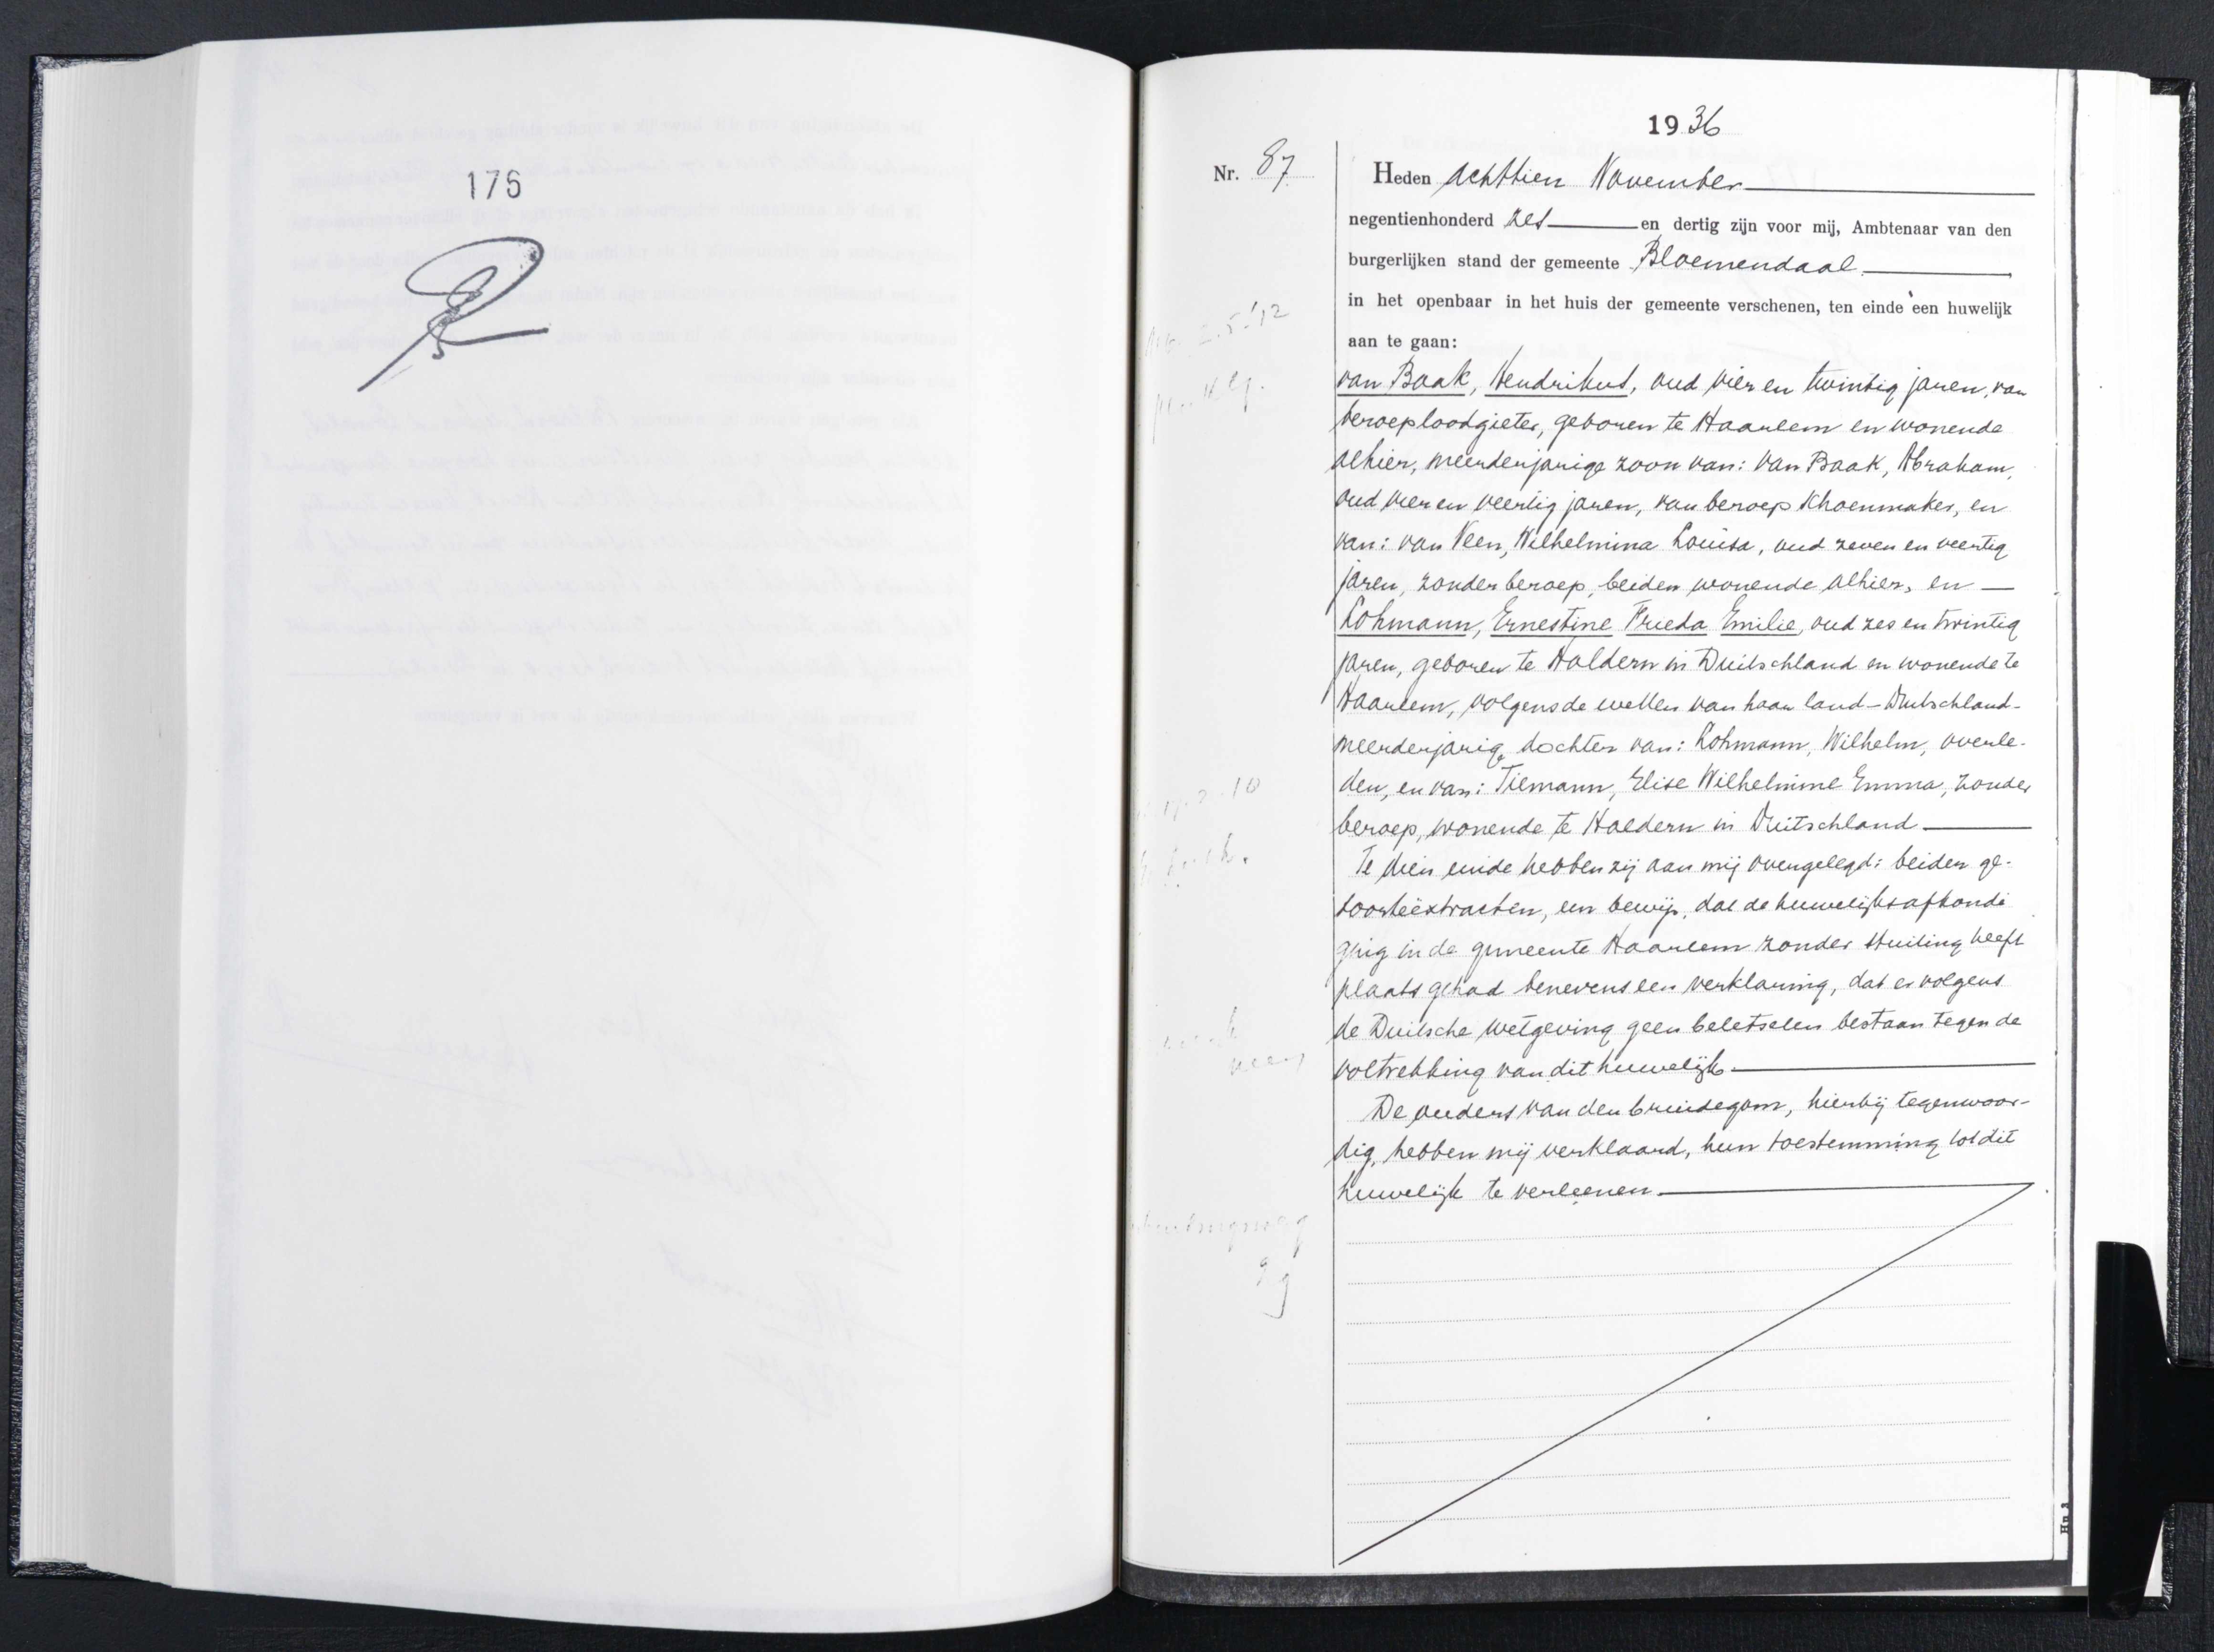 176
1936
Nr. 87
Heden achttien November
negentienhonderd zes en dertig zijn voor mij, Ambtenaar van den
burgerlijken stand der gemeente Bloemendaal
in het openbaar in het huis der gemeente verschenen, ten einde een huwelijk
aan te gaan:
van Baak, Hendrikus, oud vier en twintig jaren, van
beroep loodgieter, geboren te Haarlem en wonende
alhier, meerderjarige zoon van: van Baak, Abraham,
oud vier en veertig jaren, van beroep schoenmaker, en
van: van Veen, Wilhelmina Louisa, oud zeven en veertig
jaren, zonder beroep, beiden wonende alhier, en
Lohmann, Ernestine Frieda Emilie, oud zes en twintig
jaren, geboren te Haldern in Duitschland en wonende te
Haarlem, volgens de wetten van haar land - Duitschland -
meerderjarige dochter van: Lohmann, Wilhelm, overle-
den, en van: Tiemann, Elise Wilhelmine Emma, zonder
beroep, wonende te Haldern in Duitschland
Te dien einde hebben zij aan mij overgelegd: beider ge-
boorteëxtracten, een bewijs, dat de huwelijksafkondi
ging in de gemeente Haarlem zonder stuiting heeft
plaats gehad benevens een verklaring, dat er volgens
de Duitsche wetgeving geen beletselen bestaan tegen de
voltrekking van dit huwelijk
De ouders van den bruidegom, hierbij tegenwoor-
dig, hebben mij verklaard, hun toestemming tot dit
huwelijk te verleenen.
Hn 3